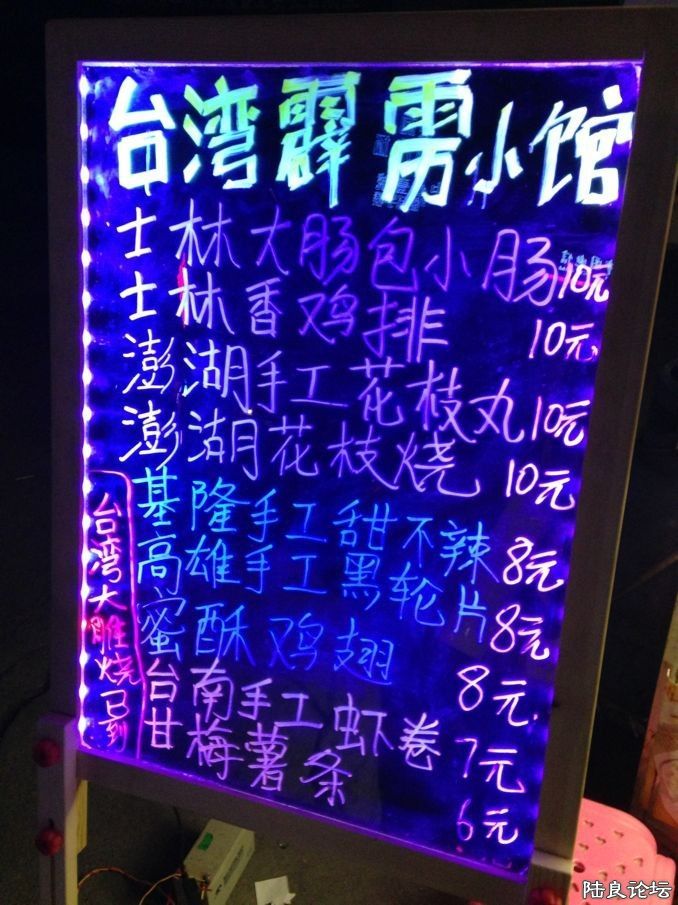 台湾霹雳小馆
士林大肠包小肠10元
士林香鸡排 10元
澎湖手工花枝丸10元
澎湖花枝烧 10元
基隆手工甜不辣8元
高雄手工黑轮片8元
蜜酥鸡翅 8元
台南手工虾卷 7元
甘梅薯条 6元
台湾大雕烧已到
陆良论坛